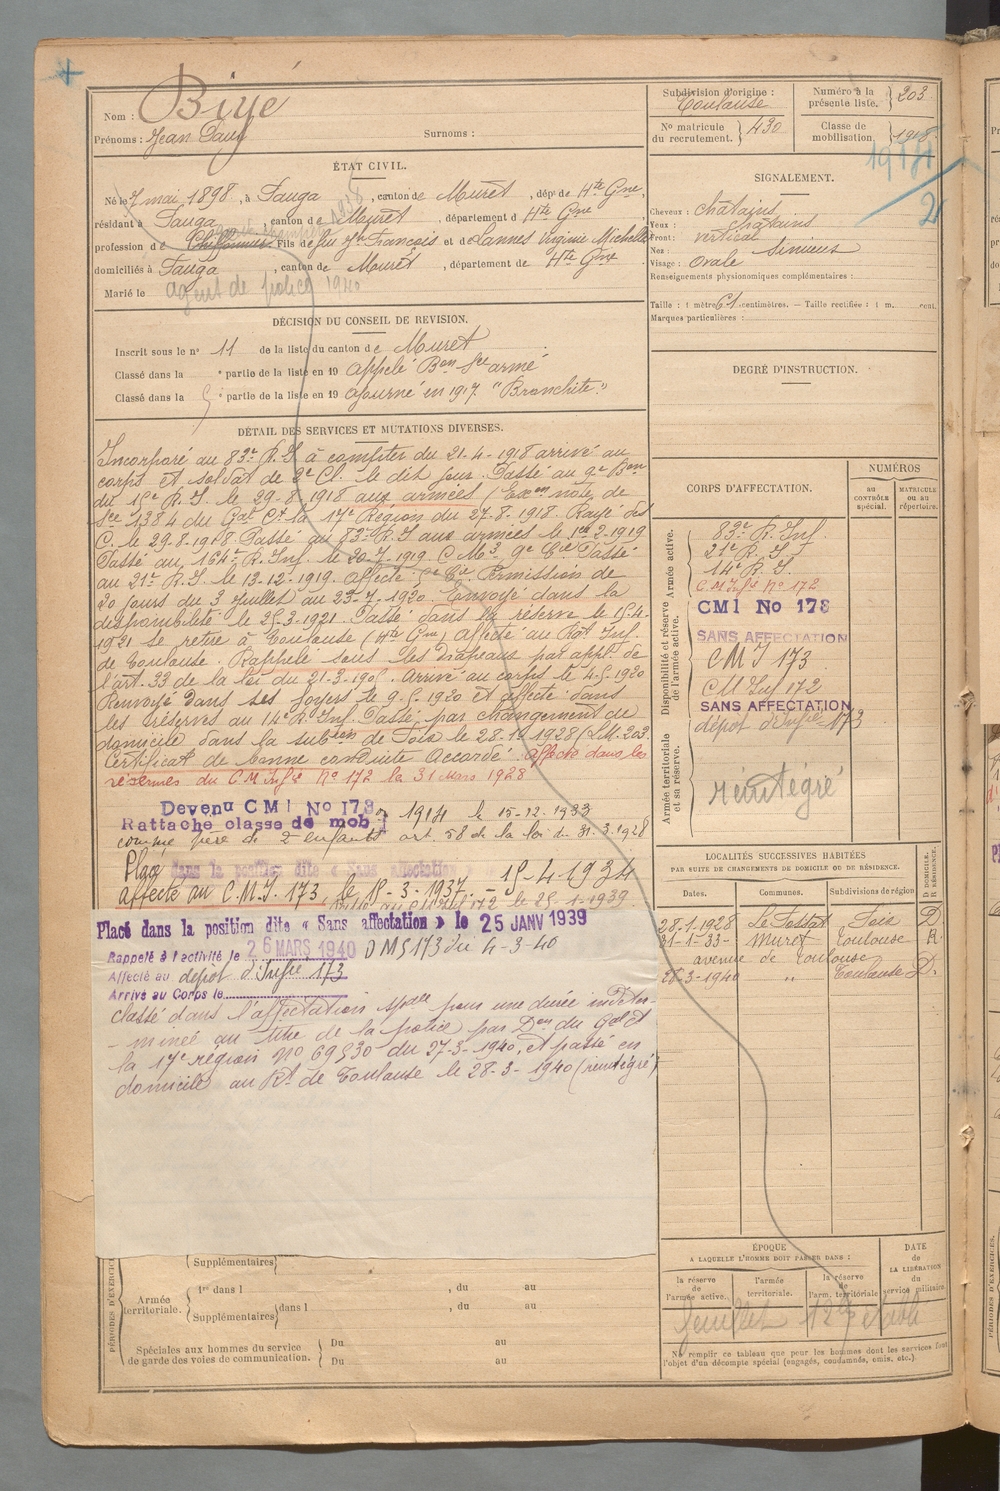 Nom : Biyé
Prénoms : Jean Paul Surnoms :
ÉTAT CIVIL.
Né le 7 mai 1898, à Fauga, canton de Muret, dépt de Hte Gne,
résidant à Fauga, canton de Muret, département d Hte Gne
profession de Chiffonnier. Fils de feu Jn François et de Lannes Virginie Michelle
domiciliés à Fauga, canton de Muret, département de Hte Gne
Marié le agent de police 1940
DÉCISION DU CONSEIL DE REVISION.
Inscrit sous le n° 11 de la liste du canton de Muret
Classé dans la ᵉ partie de la liste en 19 appelé Bon Sce armé
Classé dans la 5 ᵉ partie de la liste en 19 ajourné en 1917 "Bronchite"
DÉTAIL DES SERVICES ET MUTATIONS DIVERSES.
Incorporé au 83e R.I à compter du 21-4-1918 arrivé au
corps et soldat de 2e Cl. le dit jour. Passé au 9e Bon
du 15e R.I. le 29-8-1918 aux armées (Exon note de
Sce 1384 du Gal Ct la 17e Région du 27-8-1918. Rayé des
C. le 29-8-1918 Passé au 83e R.I aux armées le 1er 2-1919
Passé au 164e R.Inf. le 20-7-1919 C M3 9e Cie Passé
au 21e R.I. le 13-12-1919 affecté Cie Permission de
20 jours du 3 Juillet au 23-7-1920 Envoyé dans la
disponibilité le 25-3-1921. Passé dans la réserve le 15-4-
1921 se retire à Toulouse (Hte Gne) affecté au Rgt Inf.
de Toulouse. Rappelé sous les drapeaux par appl. de
l'art. 33 de la loi du 21-3-1905. Arrivé au corps le 4-5-1920
Renvoyé dans ses foyers le 9-5-1920 et affecté dans
les réserves au 14e R.Inf. Passé par changement de
domicile dans la subon de Foix le 28-1-1928 (L.M. 203
Certificat de bonne conduite Accordé. affecté dans les
réserves du C.M Infie No 172 le 31 Mars 1928
Devenu CMI No 173
Rattaché classe de mob 1914 le 15-12-1933
comme père de 2 enfants art 58 de la loi du 31.3.1928
Placé dans la position dite « Sans affectation 15-4-1934
affecté au C.M.I. 173 le 18-3-1937.
172 le 25-1-1939
Placé dans la position dite « Sans affectation » le 25 JANV 1939
Rappelé à l'activité le 26 MARS 1940 DM 5173 du 4-3-40
Affecté au dépôt d'Infie 173
Arrivé au Corps le
classé dans l'affectation spale pour une durée indéter-
-minée au titre de la police par Don du Gal Ct
la 17e région No 69530 du 27-3-1940, et passé en
domicile au Rt de Toulouse le 28-3-1940 (réintégré)
PÉRIODES D'EXERCICES
Supplémentaires
Armée territoriale.
1re dans l , du au
Supplémentaires dans l , du au
Spéciales aux hommes du service de garde des voies de communication.
Du au
Du au
Subdivision d'origine :
Toulouse
N° matricule du recrutement. 430
Numéro à la présente liste. 203
Classe de mobilisation. 1918
1914
2
SIGNALEMENT.
Cheveux : châtains
Yeux : châtains
Front : vertical
Nez : Sinueux
Visage : Ovale
Renseignements physionomiques complémentaires :
Taille : 1 mètre 61 centimètres. — Taille rectifiée : 1 m. cent.
Marques particulières :
DEGRÉ D'INSTRUCTION.
CORPS D'AFFECTATION.
NUMÉROS
AU CONTRÔLE spécial.
MATRICULE ou au répertoire.
Armée active.
Disponibilité et réserve de l'armée active.
Armée territoriale et sa réserve.
83e R. Inf.
21e R. I.
14e R. I.
C M Infie No 172
CMI No 173
SANS AFFECTATION
C M I 173
C M Inf 172
SANS AFFECTATION
dépôt d'Infie 173
réintégré
LOCALITÉS SUCCESSIVES HABITÉES
PAR SUITE DE CHANGEMENTS DE DOMICILE OU DE RÉSIDENCE.
Dates. Communes. Subdivisions de région D DOMICILE. R RÉSIDENCE.
28-1-1928 Le Fossat Foix D.
31-1-33- Muret Toulouse R.
avenue de Toulouse
28-3-1940 " Toulouse D.
ÉPOQUE
A LAQUELLE L'HOMME DOIT PASSER DANS :
la réserve de l'armée active.
l'armée territoriale.
la réserve de l'arm. territoriale
DATE de LA LIBÉRATION du service militaire.
Ne remplir ce tableau que pour les hommes dont les services font
l'objet d'un décompte spécial (engagés, condamnés, omis, etc.).